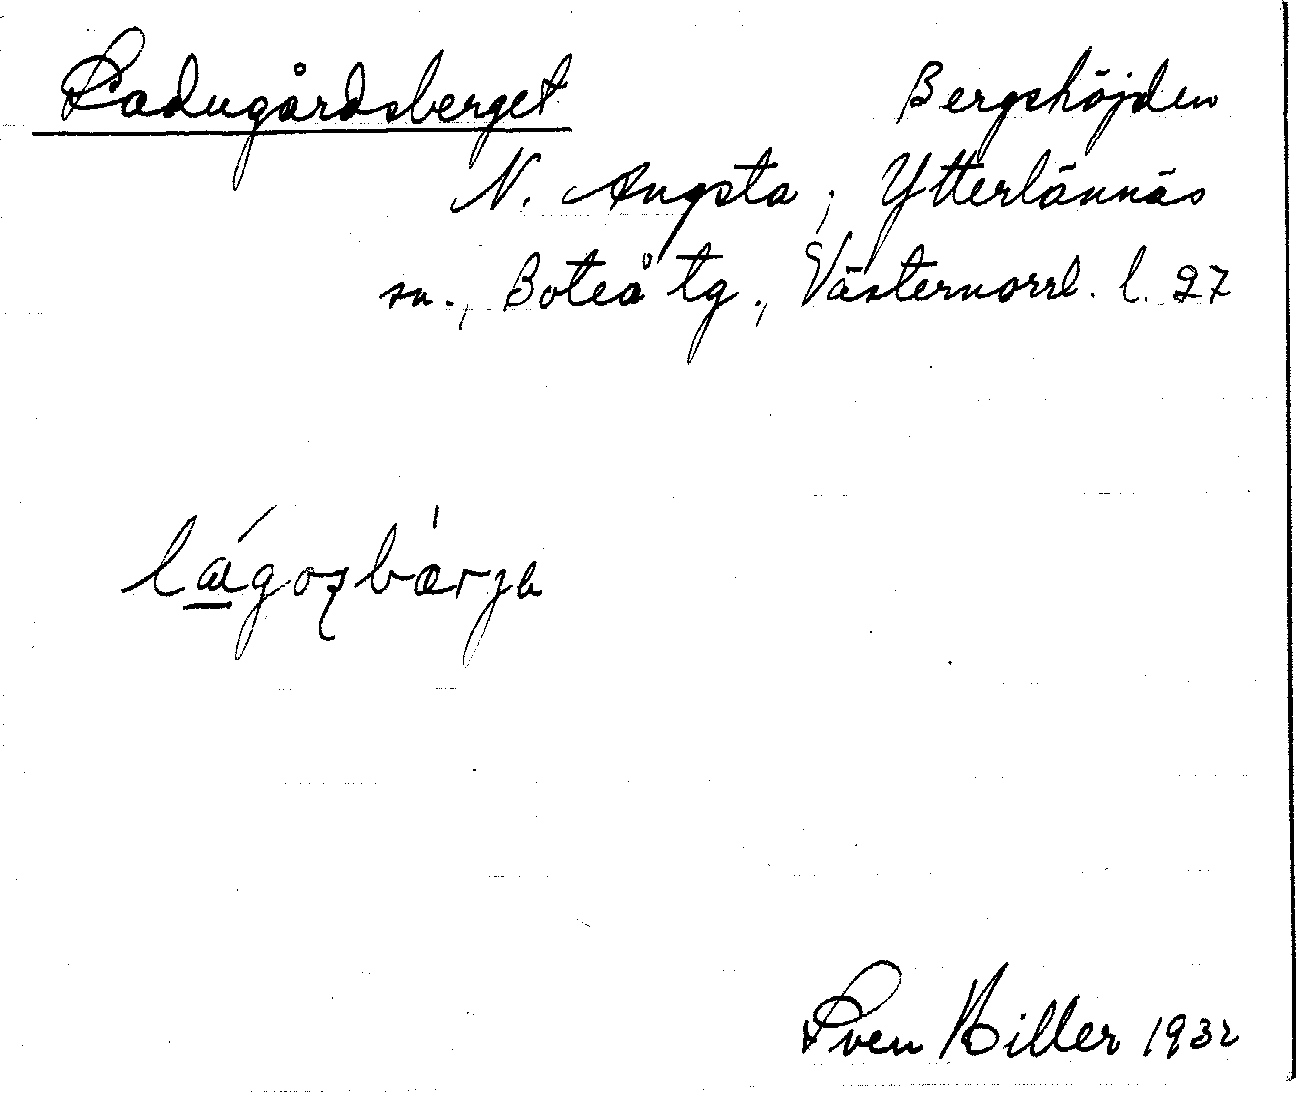 Ladugårdsberget Bergshöjden
N. Angsta, Ytterlännäs
sn., Boteå tg., Västernorrl. l. 27
Sven Hiller 1932